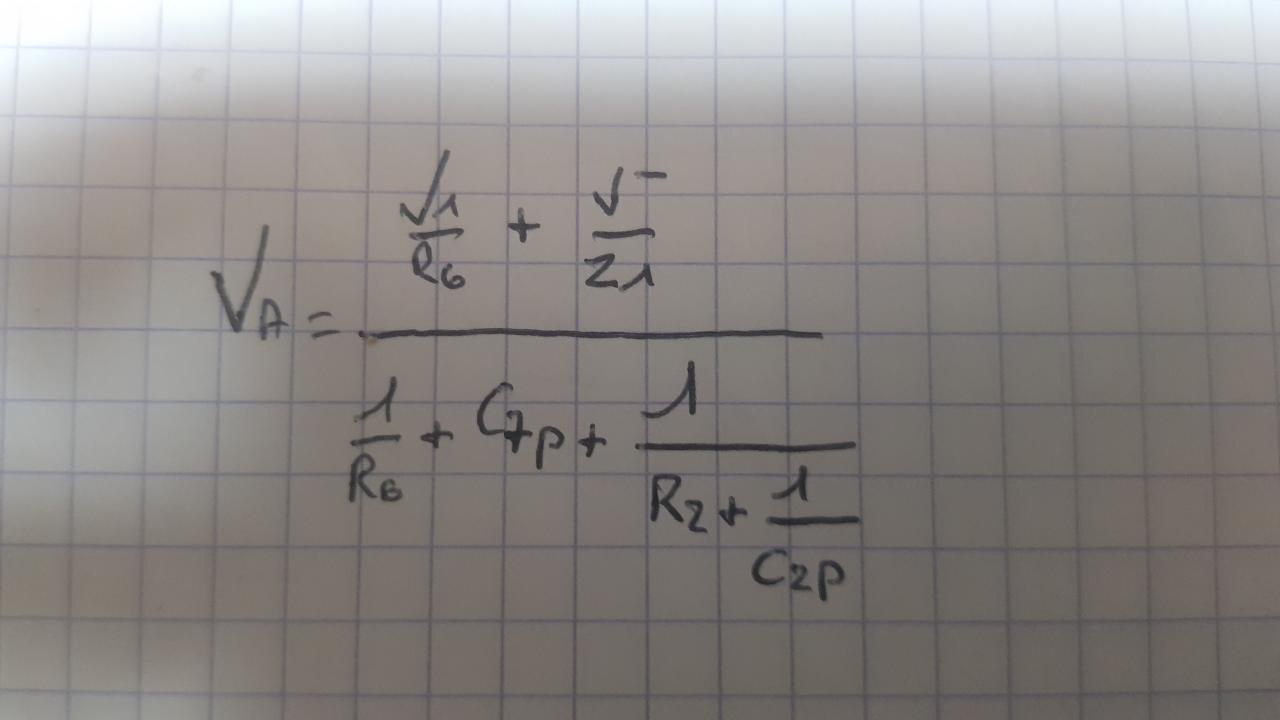 V_A = (V_1/R_6 + V^-/Z_1) / (1/R_6 + C_7p + 1/(R_2 + 1/(C_2p)))